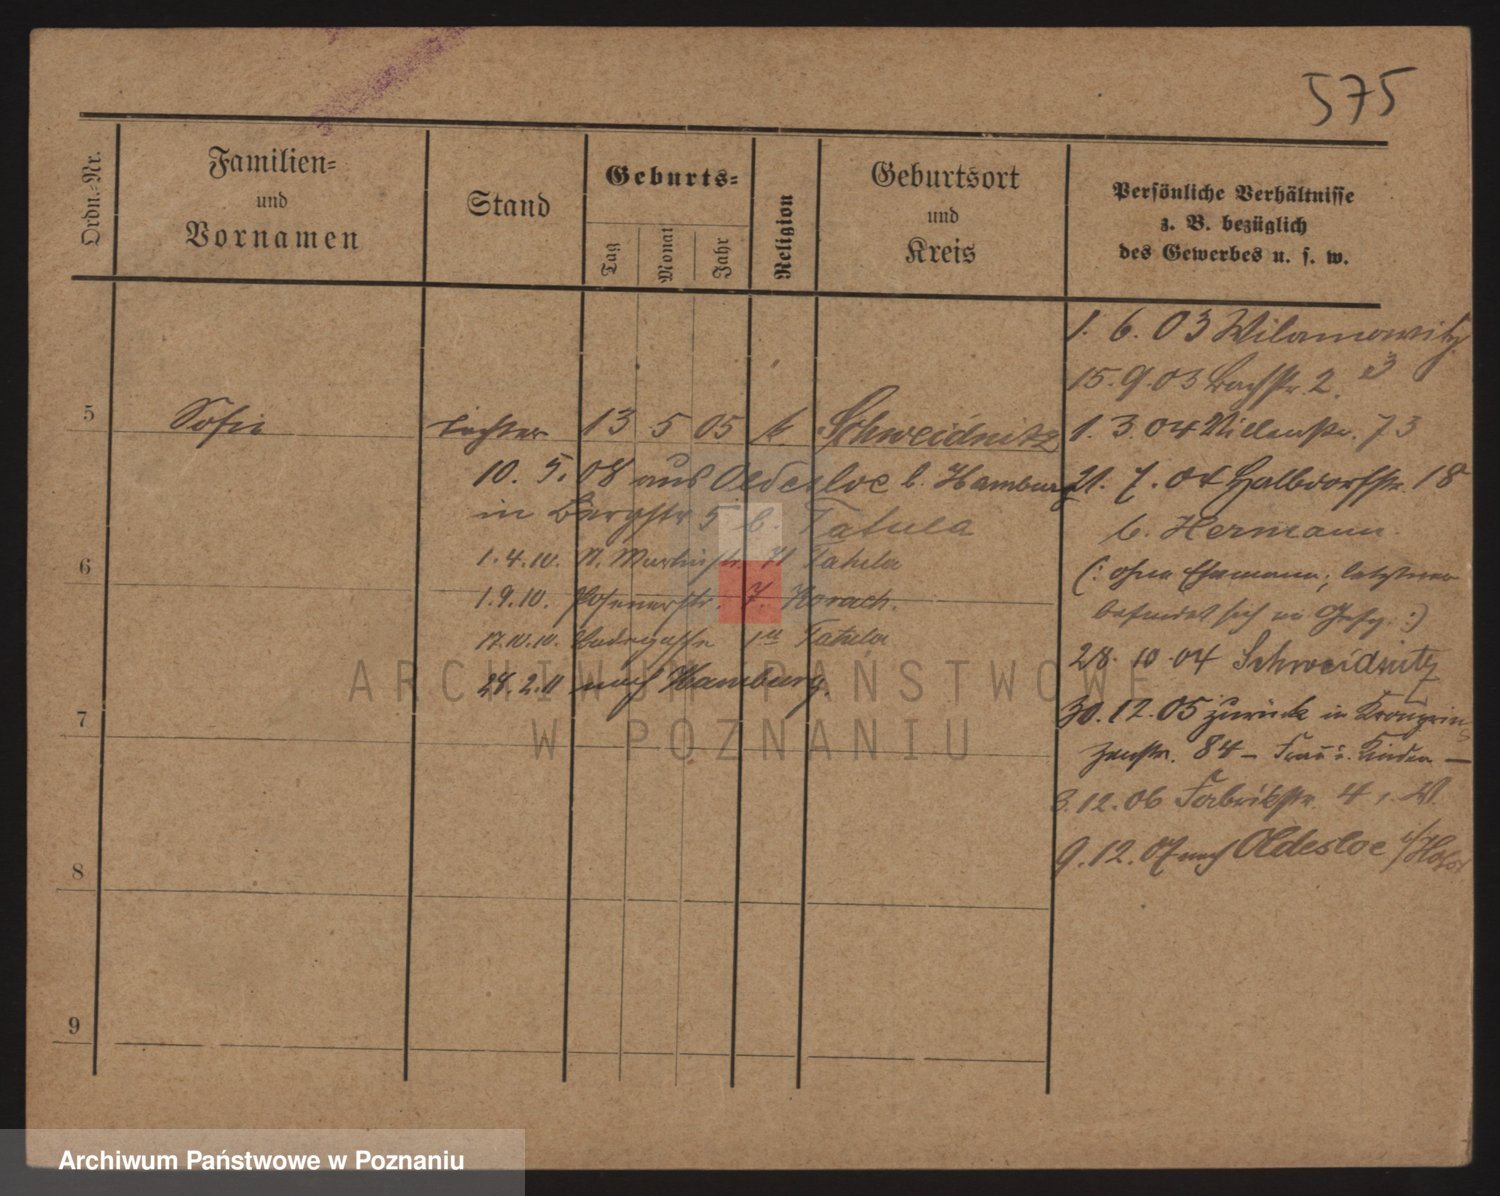 575
Ordn.=Nr.
Familien=
und
Vornamen
Stand
Geburts=
Tag
Monat
Jahr
Religion
Geburtsort
und
Kreis
Persönliche Verhältnisse
z. B. bezüglich
des Gewerbes u. s. w.
1. 6. 03 Wilamowitz
15. 9. 03 Bachstr. 2.
5 Sofie Tochter 13 5 05 k. Schweidnitz
1. 3. 04 Villenstr. 73
10. 5. 08 aus Oldesloe b. Hamburg
in Bergstr 5 b. Tatula
1.4.10. St. Martinstr. Tatula
1.9.10. Posenerstr. 7. Korach.
17.10.10. Badegasse Tatula
28.2.11 nach Hamburg.
21. 7. 04 Halbdorfstr. 18
b. Hermann.
(: ohne Ehemann; letzterer
befindet sich im Gefg. :)
28. 10 04 Schweidnitz
30. 12. 05 zurück in Kronprin
zenstr. 84 — Frau u. Kinder —
3. 12. 06 Fabrikstr. 4
9. 12. 07 nach Oldesloe
6
7
8
9
ARCHIWUM PAŃSTWOWE
W POZNANIU
Archiwum Państwowe w Poznaniu